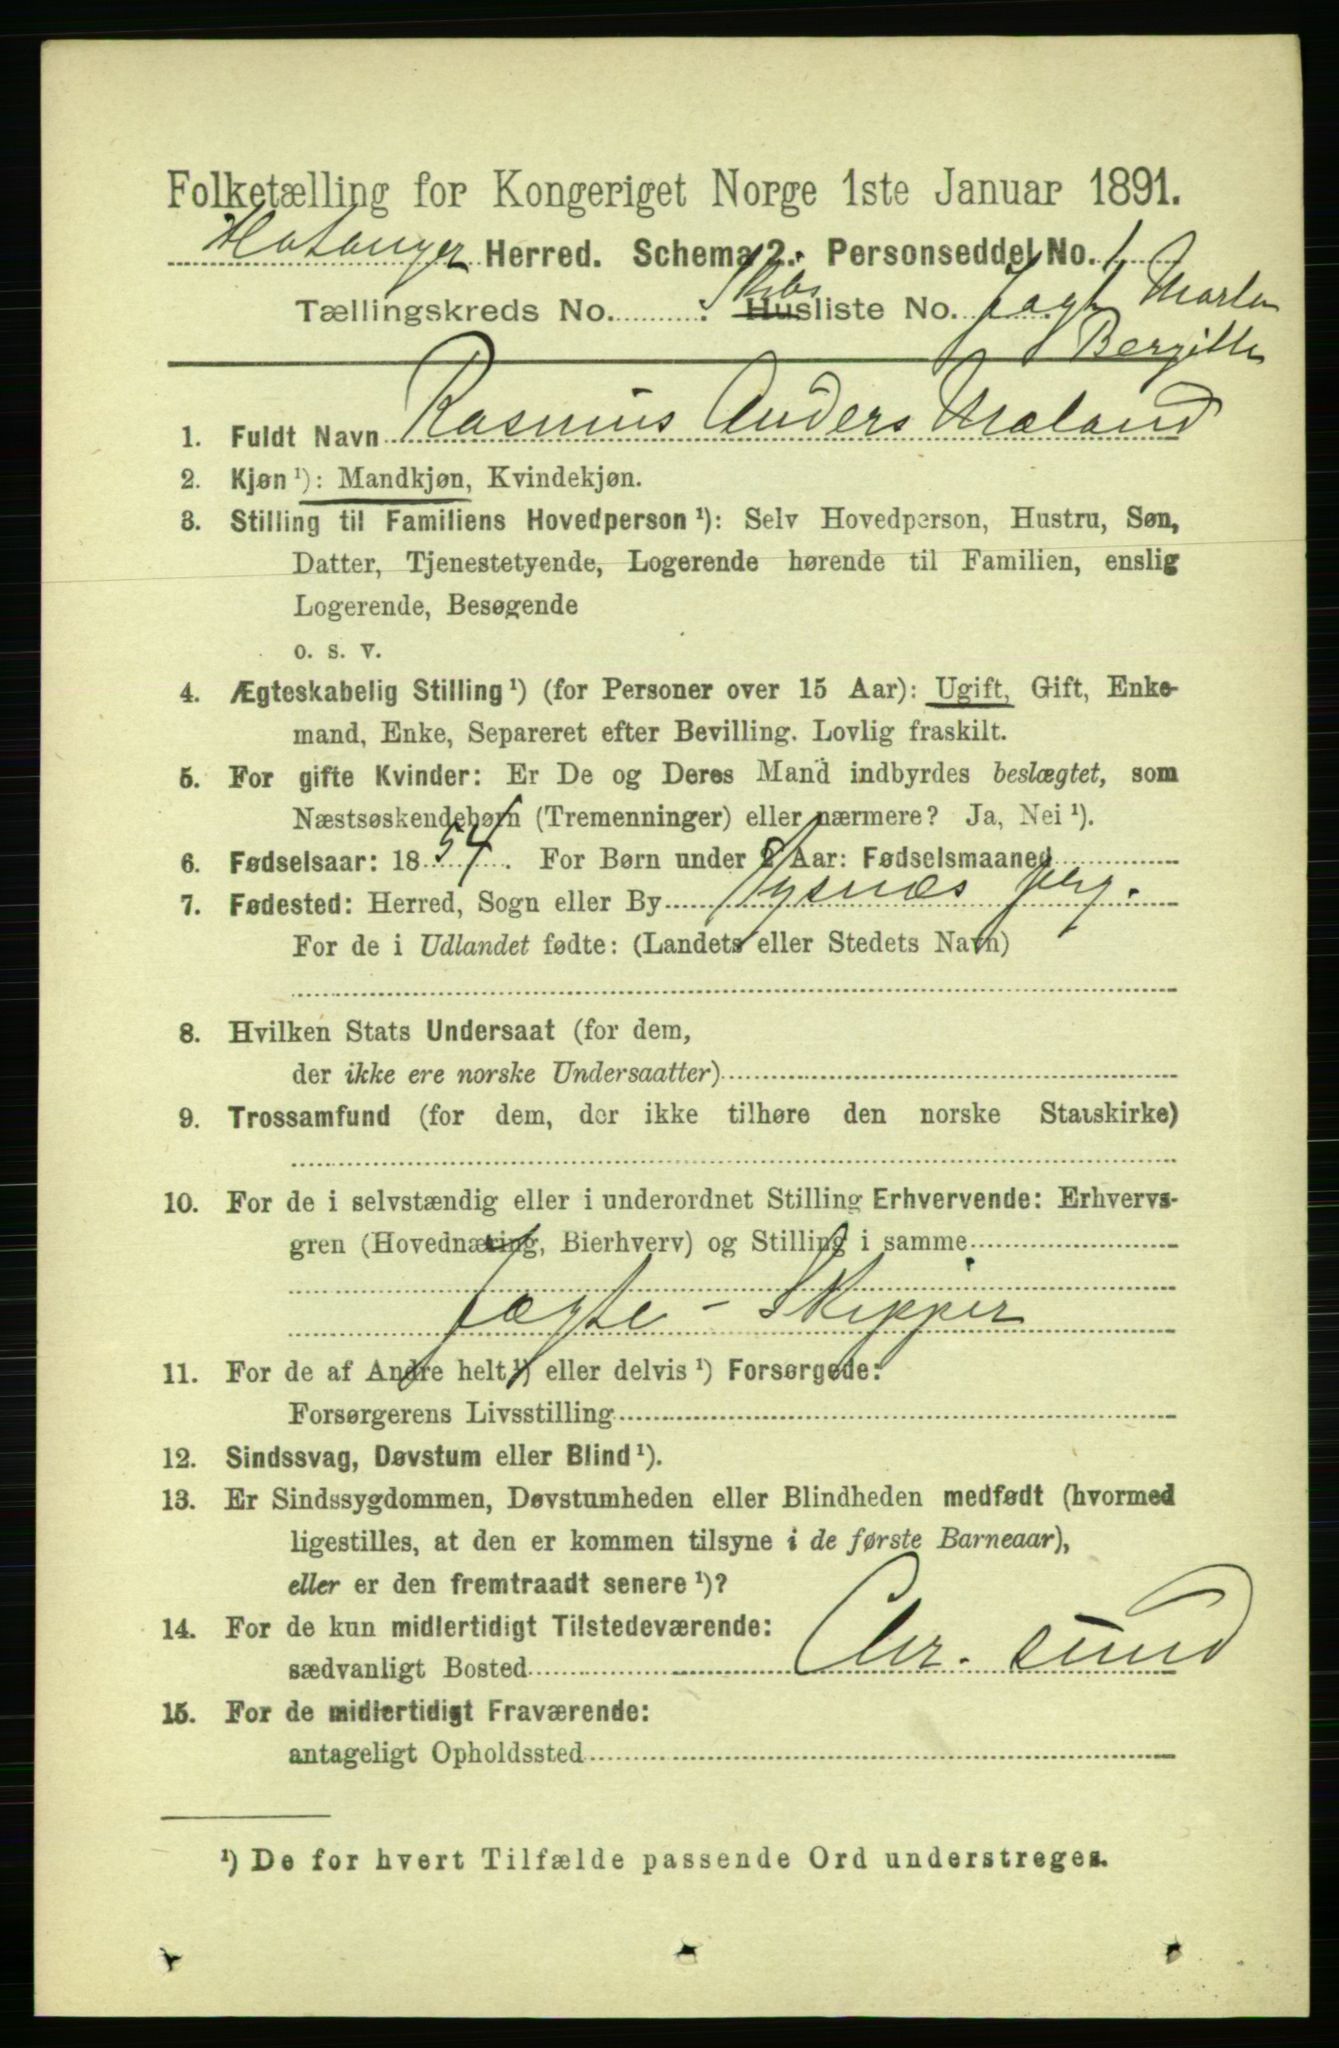 Folketælling for Kongeriget Norge 1ste Januar 1891.
Herred. Schema 2. Personseddel No. 1
Tællingskreds No. : Skibs Husliste No. Jagt Martha
Bergitte
1. Fuldt Navn Rasmus Anders Maland
2. Kjøn ¹): Mandkjøn, Kvindekjøn.
3. Stilling til Familiens Hovedperson ¹): Selv Hovedperson, Hustru, Søn,
Datter, Tjenestetyende, Logerende hørende til Familien, enslig
Logerende, Besøgende
o. s. v.
4. Ægteskabelig Stilling ¹) (for Personer over 15 Aar): Ugift, Gift, Enke-
mand, Enke, Separeret efter Bevilling. Lovlig fraskilt.
5. For gifte Kvinder: Er De og Deres Mand indbyrdes beslægtet, som
Næstsøskendebørn (Tremenninger) eller nærmere? Ja, Nei ¹).
6. Fødselsaar: 1854. For Børn under 2 Aar: Fødselsmaaned
7. Fødested: Herred, Sogn eller By Tysnæs prg.
For de i Udlandet fødte: (Landets eller Stedets Navn)
8. Hvilken Stats Undersaat (for dem,
der ikke ere norske Undersaatter)
9. Trossamfund (for dem, der ikke tilhøre den norske Statskirke)
10. For de i selvstændig eller i underordnet Stilling Erhvervende: Erhvervs-
gren (Hovednæring, Bierhverv) og Stilling i samme
Jagte-Skipper
11. For de af Andre helt ¹) eller delvis ¹) Forsørgede:
Forsørgerens Livsstilling
12. Sindssvag, Døvstum eller Blind ¹).
13. Er Sindssygdommen, Døvstumheden eller Blindheden medfødt (hvormed
ligestilles, at den er kommen tilsyne i de første Barneaar),
eller er den fremtraadt senere ¹)?
14. For de kun midlertidigt Tilstedeværende:
sædvanligt Bosted Chr. sund
15. For de midlertidigt Fraværende:
antageligt Opholdssted
¹) De for hvert Tilfælde passende Ord understreges.